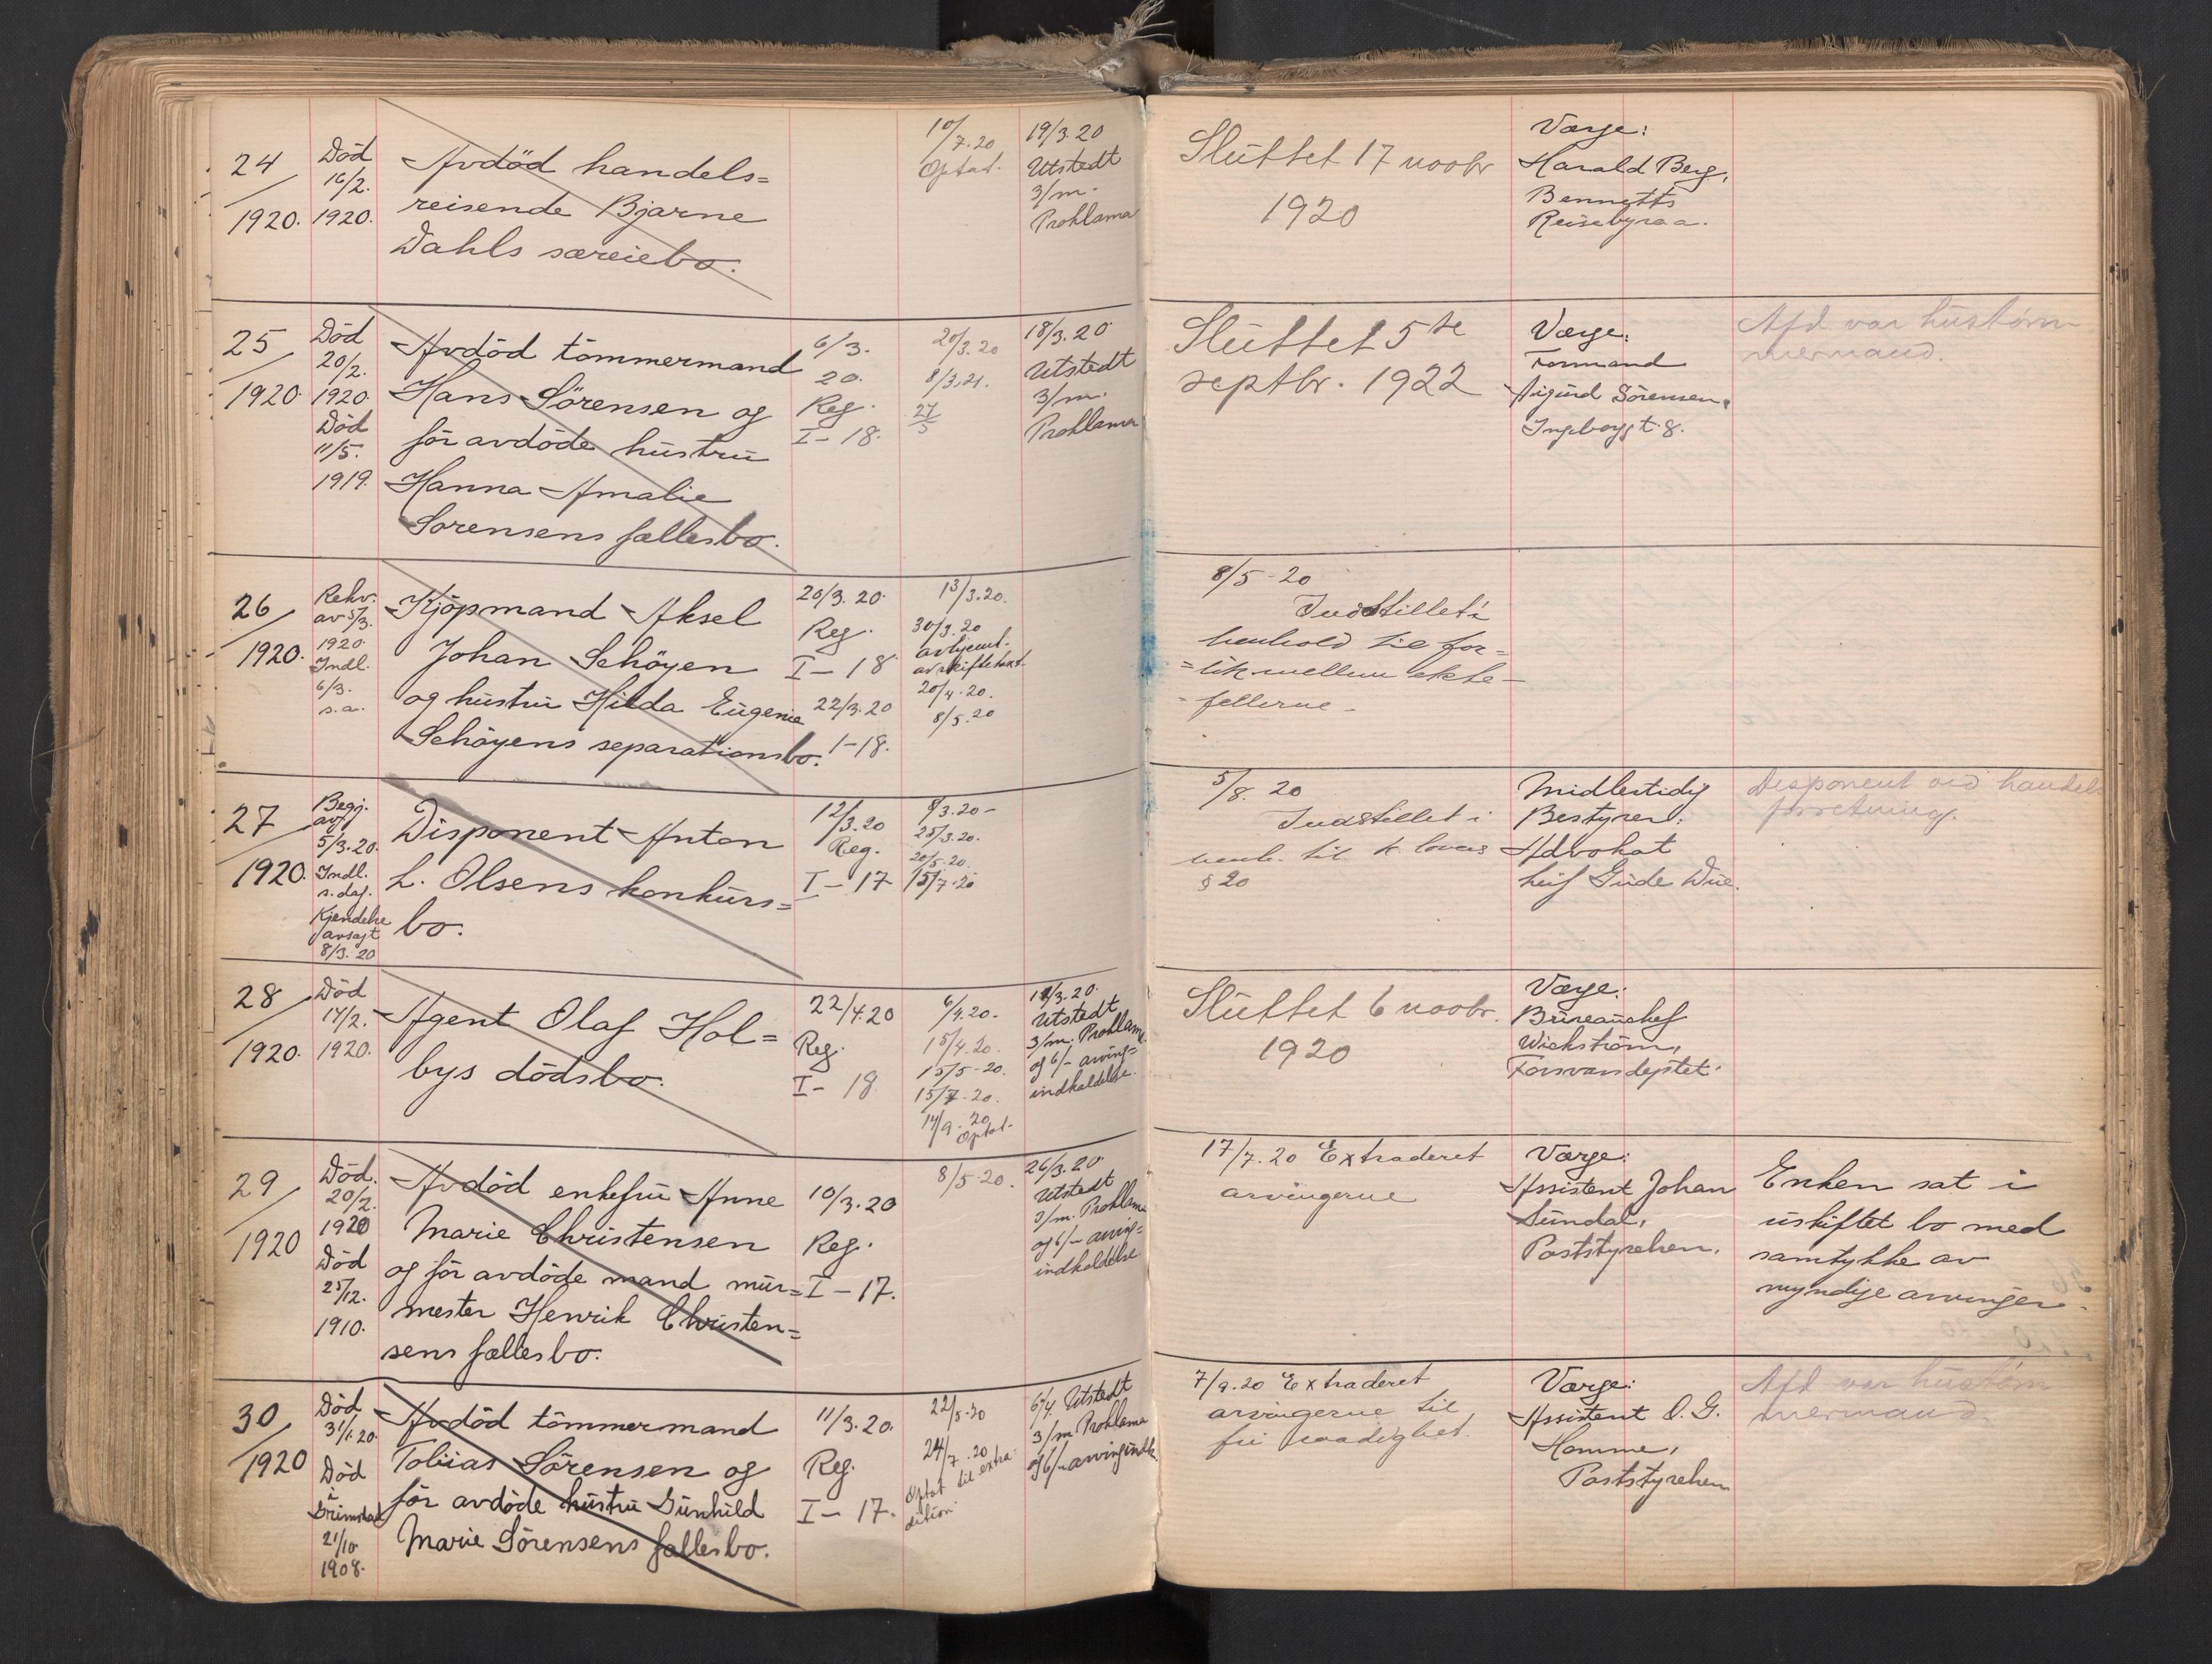 24
1920.
Död
16/2.
1920.
Avdöd handels=
reisende Bjarne
Dahls særeiebo.
10/7.20
Optat.
19/3.20
Utstedt
3/m.
Proklama
Sluttet 17 novbr
1920
Værge:
Harald Berg,
Bennetts
Reisebyraa.
25
1920.
Död
20/2.
1920.
Död
11/5.
1919.
Avdöd tömmermand
Hans Sörensen og
för avdöde hustru
Hanna Amalie
Sörensens fællesbo.
6/3.
20.
Reg.
I-18.
20/3.20
8/3.21.
27/5
18/3.20
Utstedt
3/m.
Proklama
Sluttet 5te
septbr. 1922
Værge:
Formand
Sigurd Sörensen,
Ingeborggt. 8.
Afd var hustöm-
mermand.
26
1920.
Rekv.
av 5/3.
1920.
Indl.
6/3.
s.a.
Kjöpmand Aksel
Johan Schöyen
og hustru Hilda Eugenie
Schöyens separationsbo.
20/3.20.
Reg.
I-18
22/3.20
I-18.
13/3.20.
30/3.20
avhjemt.
av skifteteat.
20/4.20.
8/5.20
8/5-20
Indstillet i
henhold til for=
=lik mellem ekte-
fellerne-
27
1920.
Begj.
av
5/3.20.
Indl.
s. dag.
Kjendelse
avsagt
8/3.20
Disponent Anton
L. Olsens konkurs=
bo.
12/3.20
Reg.
I-17
8/3.20-
25/3.20.
20/5.20.
15/7.20
5/8.20
Indstillet i
henh. til k. lovens
§ 20
Midlertidig
Bestyrer:
Advokat
Leif Gude Due.
Disponent ved handels
forretning.
28
1920.
Död
14/2.
1920.
Agent Olaf Hol=
bys dödsbo.
22/4.20
Reg.
I-18
6/4.20.
15/4.20.
15/5-20.
15/7.20.
14/9.20
Optat.
18/3.20.
Utstedt
3/m. Proklama
og 6/- arving=
indkaldelse.
Sluttet 6 novbr.
1920
Værge:
Bureauchef
Wickström,
Forsvarsdeptet.
29
1920
Död.
20/2.
1920
Död
25/12.
1910.
Avdöd enkefru Anne
Marie Christensen
og för avdöde mand mur=
mester Henrik Christen=
sens fællesbo.
10/3.20
Reg.
I-17.
8/5-20.
26/3.20
Utstedt
3/m. Proklama
og 6/- arving=
indkaldelse.
17/7.20 Extraderet
arvingerne
Værge:
Assistent Johan
Sundal,
Poststyrelsen.
Enken sat i
uskiftet bo med
samtykke av
myndige arvinger.
30
1920
Död
31/1.20.
Död
i
Grimstad
21/10
1908.
Avdöd tömmermand
Tobias Sörensen og
för avdöde hustru Gunhild
Marie Sörensens fællesbo.
11/3.20.
Reg.
I-17.
22/5.20
24/7.20
Optat til extra-
dition
6/4. Utstedt
3/m Proklama
og 6/- arvingindk.
7/9.20 Extraderet
arvingerne til
fri raadighet.
Værge:
Assistent O. G.
Homme,
Poststyrelsen
Afd var hustöm
mermand